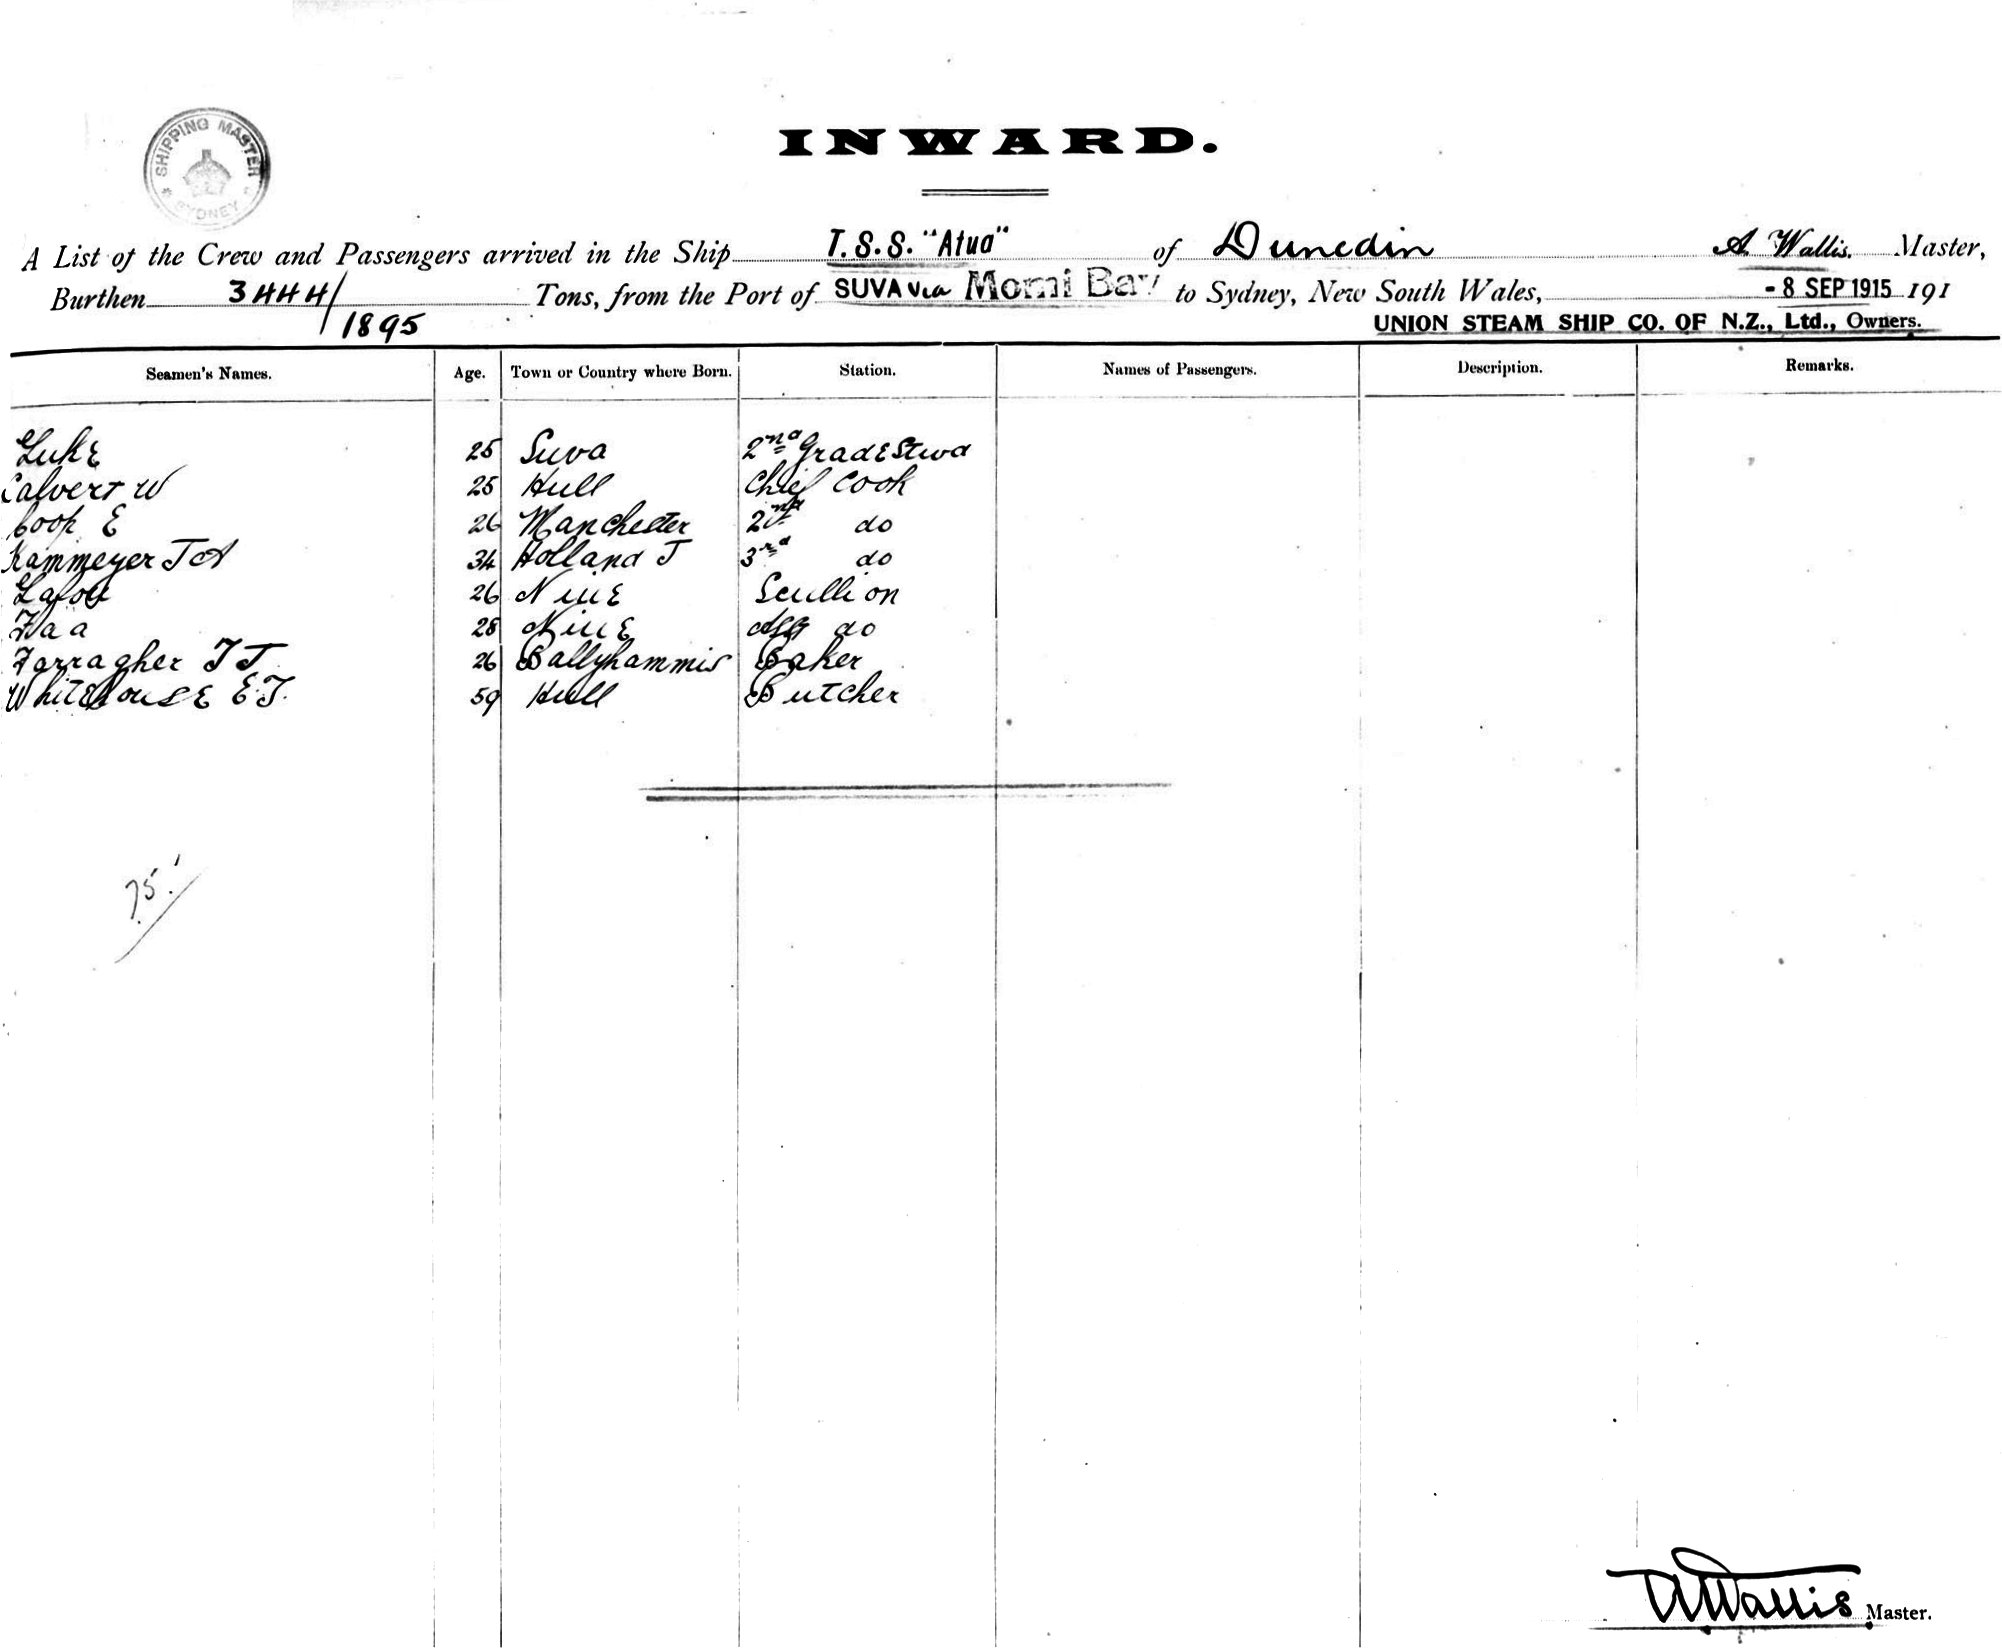 SHIPPING MASTER SYDNEY
INWARD.
A List of the Crew and Passengers arrived in the Ship T.S.S. "Atua" of Dunedin A Wallis. Master,
Burthen 3444/1895 Tons, from the Port of SUVA via Momi Bay to Sydney, New South Wales, - 8 SEP 1915 191
UNION STEAM SHIP CO. OF N.Z., Ltd., Owners.
Seamen's Names. Age. Town or Country where Born. Station. Names of Passengers. Description. Remarks.
Luke 25 Suva 2nd Grade Stwd
Calvert W 25 Hull Chief Cook
Cook E 26 Manchester 2nd do
Kammeyer J A 34 Holland J 3rd do
26 Niue Scullion
Faa 28 Niue Asst do
Farragher T J 26 Ballyhammis Baker
Whitehouse E.J. 59 Hull Butcher
75.
A Wallis Master.